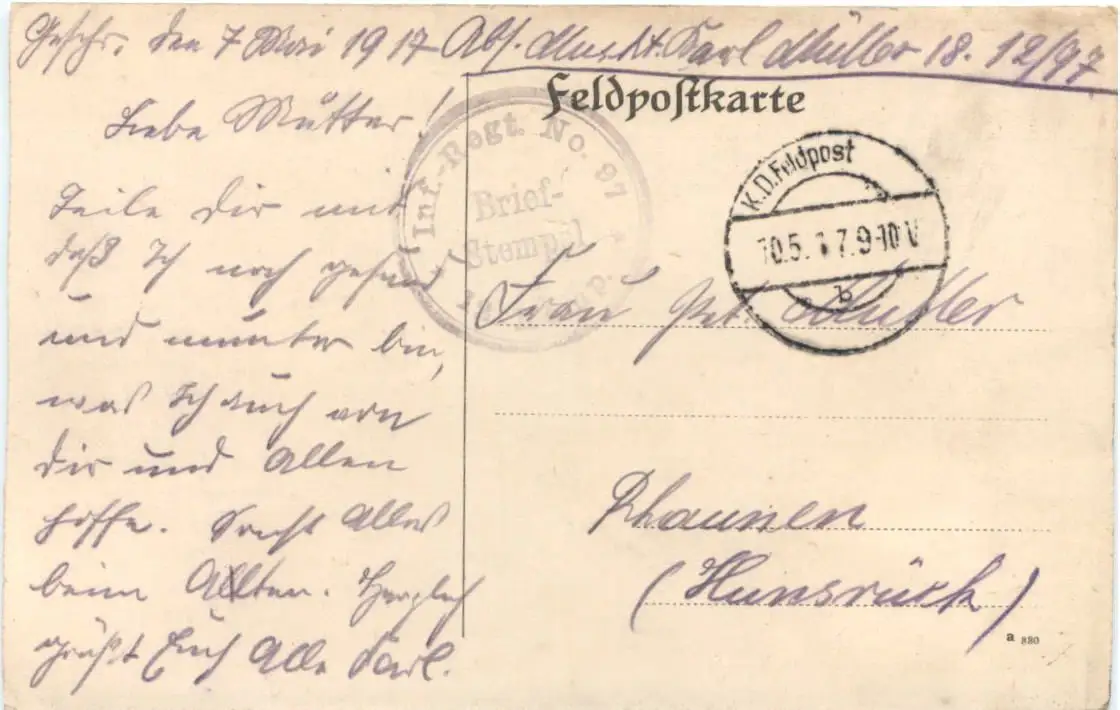 Geschr. den 7 Mai 1917 Abs. Musk. Karl Müller 18. 12/97
Feldpostkarte
Liebe Mutter!
Teile Dir mit
daß Ich noch gesund
und munter bin,
was Ich auch von
Dir und Allen
hoffe. Sonst Alles
beim Allten. Herzlich
grüßt Euch Alle Karl.
Inf.-Regt. No. 97
Brief-
Stempel
K.D. Feldpost
10.5.17.9-10V
b
Frau Pet. Müller
Rhaunen
(Hunsrück)
a 880